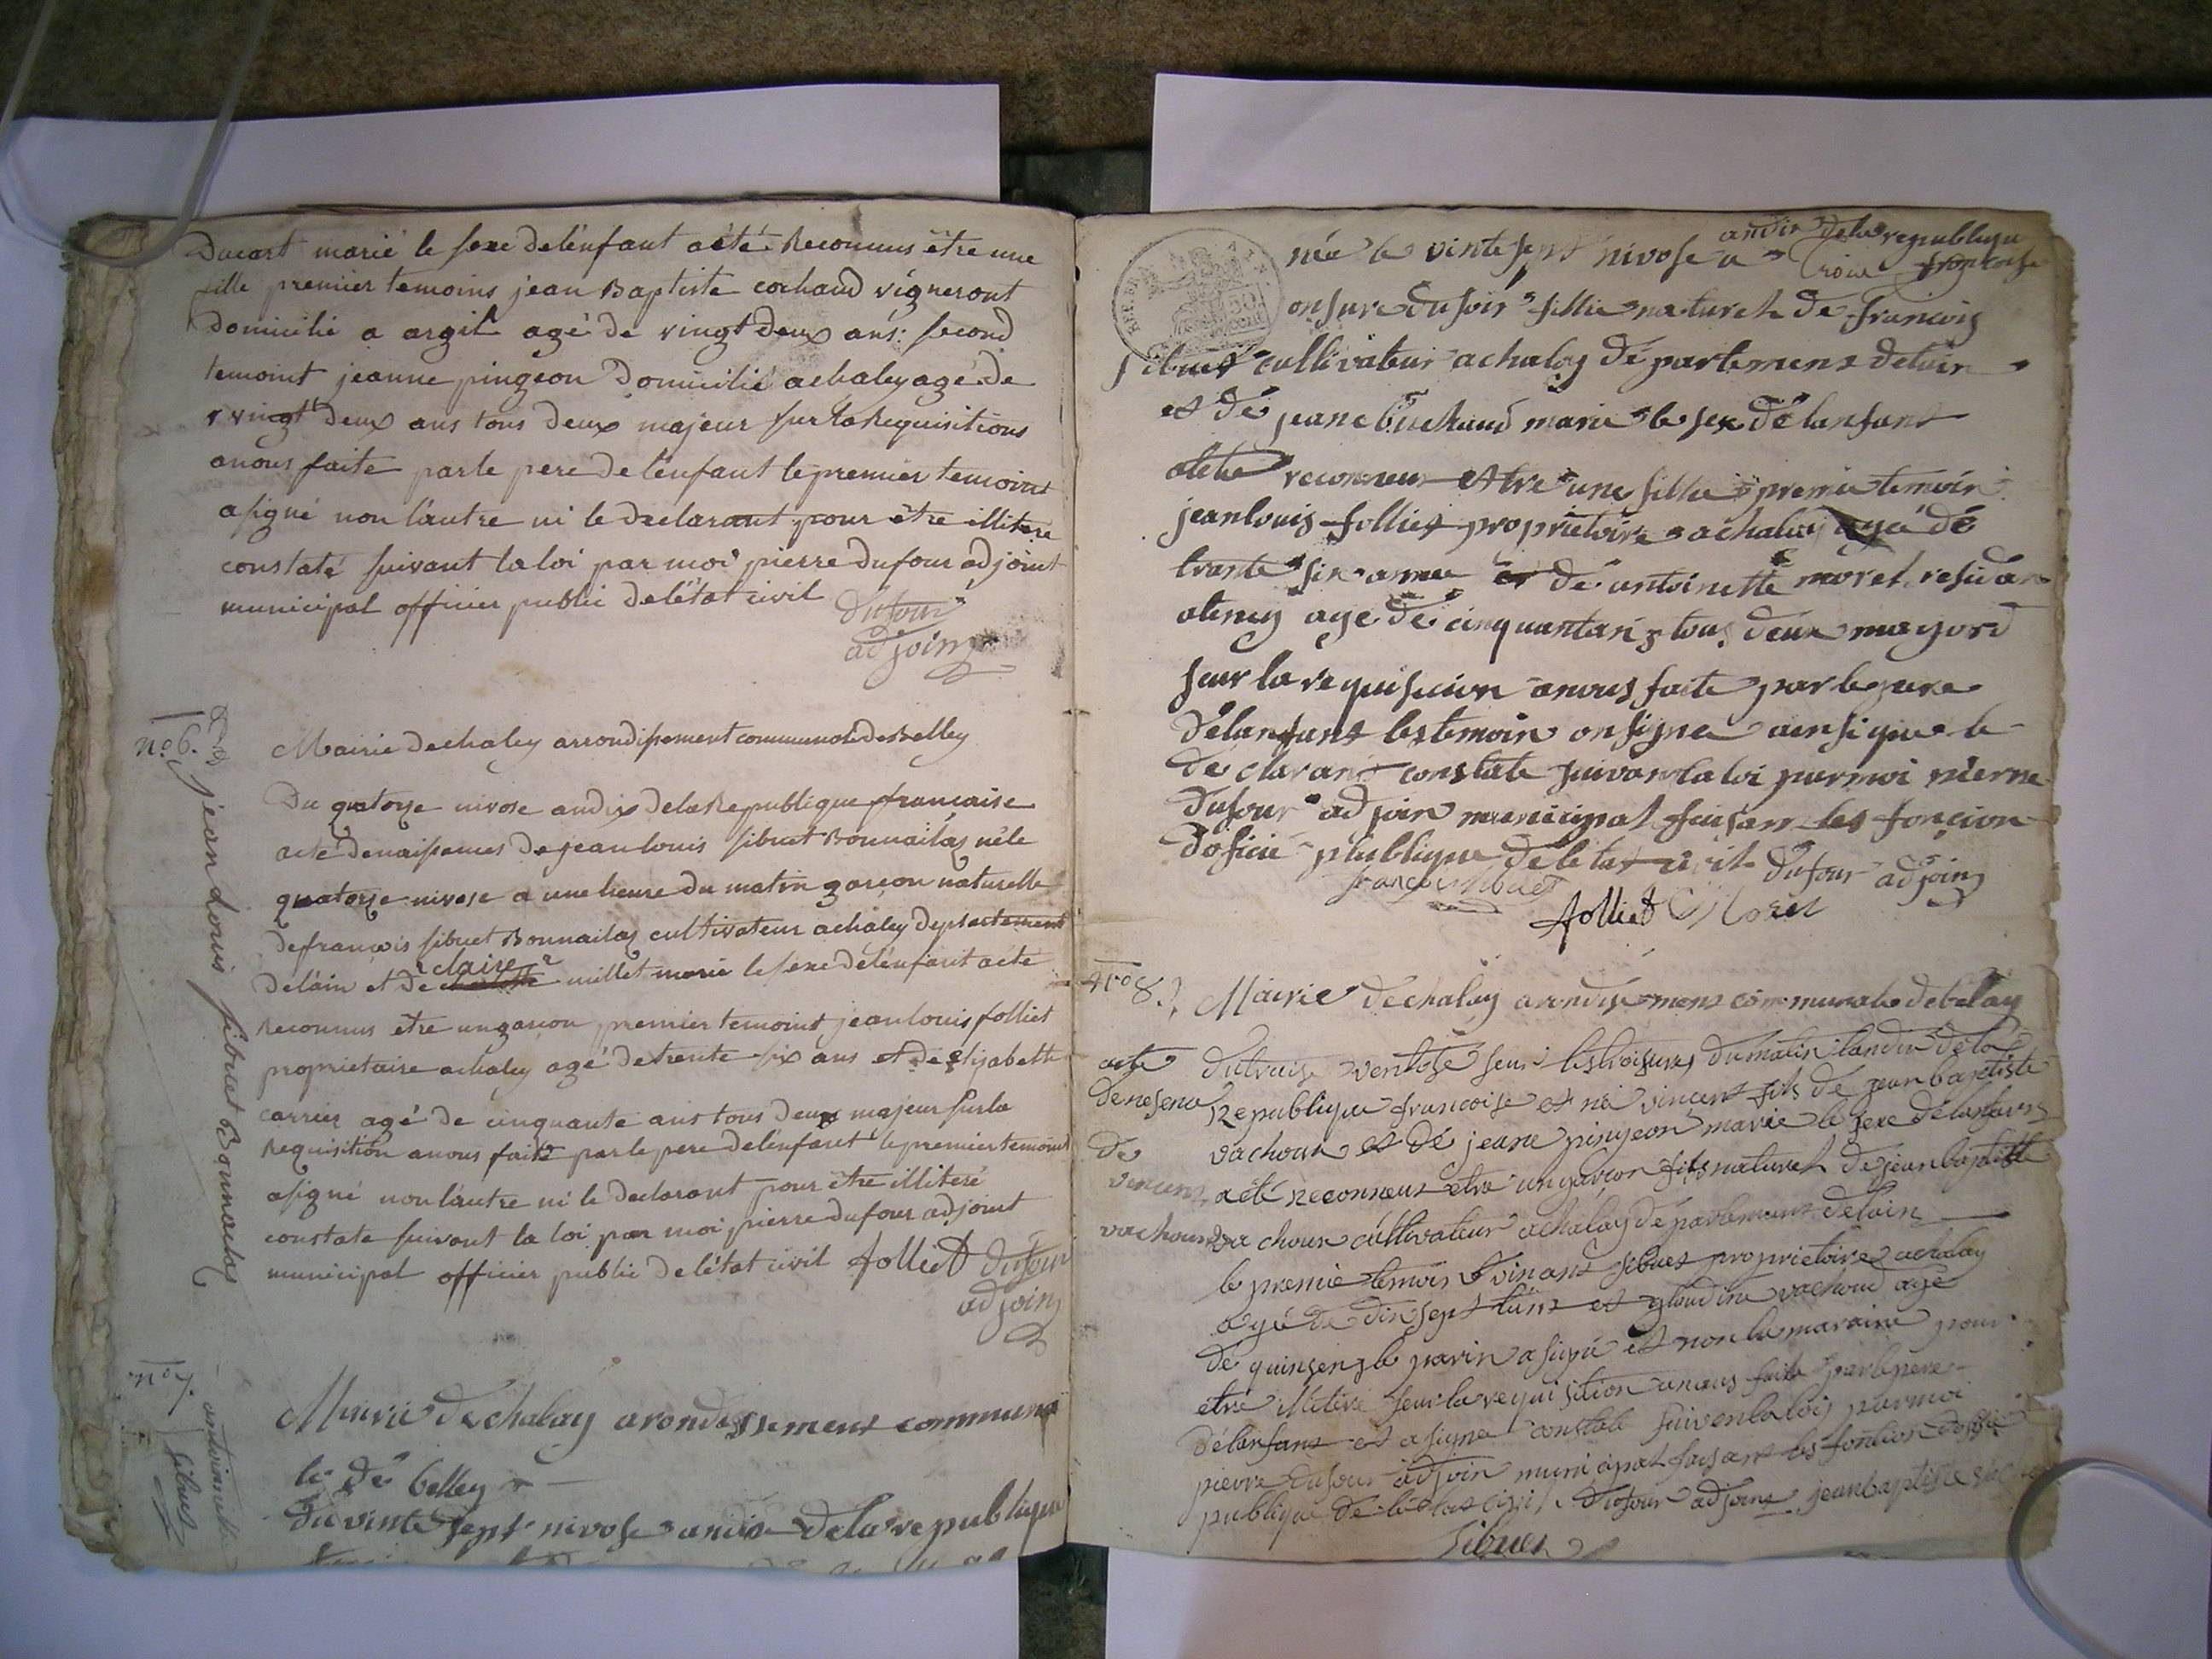 Ducart marié le sexe delénfant aété Reconnus être une
fille premier temoins jean Baptiste cochaud vigneront
domicilié a argit agé de vingt deux ans: second
temoint jeanne pingeon Domicilié achaley agé de
vingt deux ans tous deux majeur sur la Requisitions
anous faite parle pere delénfant le premier temoint
asigné non láutre ni le declarant pour être illitere
constaté suivant la loi par moi pierre dufour adjoint
municipal officier public delétat civil
dufour
adjoint
no 6.
jean Louis sibuet Bonnailas
Mairie dechaley arrondissement communale de Belley
Du quatorze nivose andix dela Republique française
acte denaissances de jean louis sibuet Bonnailas néle
quatorze nivose a une heure du matin garcon naturelle
defrançois sibuet Bonnailas cultivateur achaley departement
claire
deláin et de millet marié le sexe delénfant aété
Reconnus être ungarcon premier temoint jean louis folliet
proprietaire achaley agé detrente six ans et de elisabette
carrier agé de cinquante ans tous deux majeur surla
Requisition anous faite parle pere delénfant le premier temoint
asigné non láutre ni le declarant pour être illiteré
constate suivant la loi par moi pierre dufour adjoint
municipal officier public delétat civil folliet dufour
adjoint
no 7.
antoinette
sibuet
Mairie dechalay arondissement communa
le de belley
Du vinte sept nivose andix dela republique
andix dela republique
née le vinte sept nivose a francoise
onsure dusoir fillie naturel de francois
sibuet cultivateur achalay département deluin
et dé jeane buchaud marie le sex délanfant
aleté reconneu estre une fillie premie temoin
jeanlouis folliet proprietoire achalay agé dé
trante six annee de antoinette moret residan
atenay age dé cinquantans tous deux mayord
seur la requisicion anous faite par le pere
délanfant les temoin onsigne ainsi que le
declarant constate suivant la loi parmoi pierre
Dufour adjoin municipal faisan les foncion
doficié plublique dele tat civil dufour adjoin
francois sibuet
folliet Moret
No 8.
Mairie dechalay arondisemens communale debelay
acte
denesence
de
vincent
vachoux
dutraise ventose seur lestroisures dumatin landix dela
Republique francoise et né vincent fils dé jean baptiste
vachoux et dé jeane pingeon mariée le sexe délanfant
aété reconneus etre un garçon fils naturel de jean baptiste
vachoux cultivateur achalay département deloin
le premie temoin vinant sibuet proprietoire achalay
agé de dix sept et gloudine vachoud agé
dé quinsens le parin a signé et non la maraine pour
etre illetére seur la requisition anous faite parle pere
délanfant et a signe constate suivent la loi parmoi
pierre dufour adjoin municipal faisant les fontion dofisié
publique dé létat civil dufour adjoins jeanbaptiste
sibuet